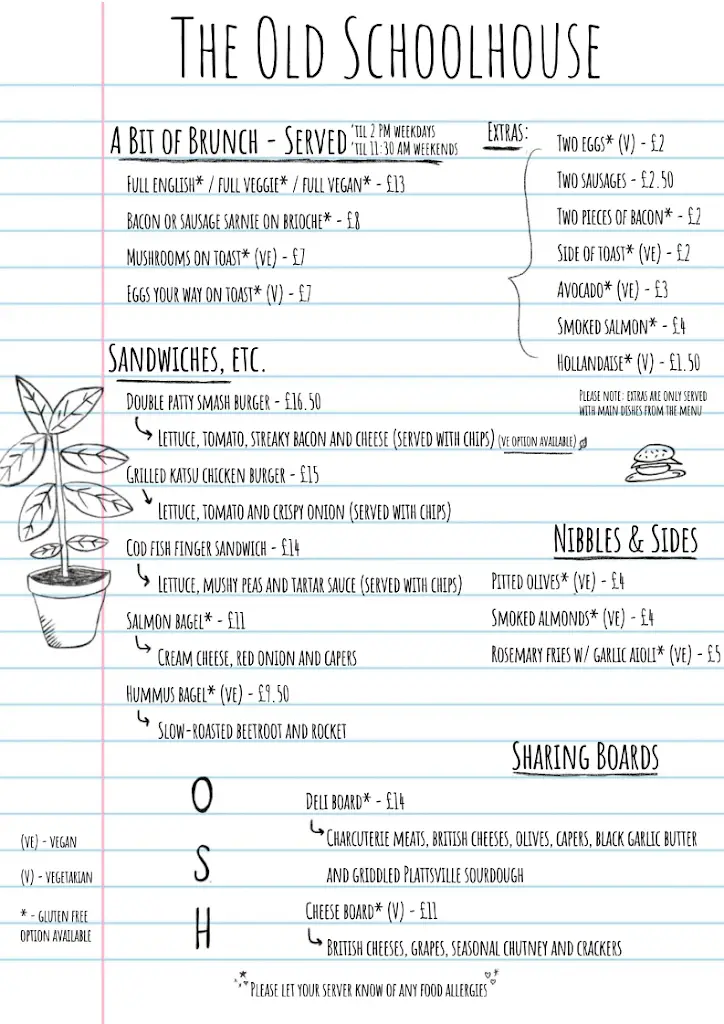 THE OLD SCHOOLHOUSE
A BIT OF BRUNCH - SERVED
'TIL 2 PM WEEKDAYS
'TIL 11:30 AM WEEKENDS
FULL ENGLISH* / FULL VEGGIE* / FULL VEGAN* - £13
BACON OR SAUSAGE SARNIE ON BRIOCHE* - £8
MUSHROOMS ON TOAST* (VE) - £7
EGGS YOUR WAY ON TOAST* (V) - £7
EXTRAS:
TWO EGGS* (V) - £2
TWO SAUSAGES - £2.50
TWO PIECES OF BACON* - £2
SIDE OF TOAST* (VE) - £2
AVOCADO* (VE) - £3
SMOKED SALMON* - £4
HOLLANDAISE* (V) - £1.50
PLEASE NOTE: EXTRAS ARE ONLY SERVED
WITH MAIN DISHES FROM THE MENU
SANDWICHES, ETC.
DOUBLE PATTY SMASH BURGER - £16.50
LETTUCE, TOMATO, STREAKY BACON AND CHEESE (SERVED WITH CHIPS) (VE OPTION AVAILABLE)
GRILLED KATSU CHICKEN BURGER - £15
LETTUCE, TOMATO AND CRISPY ONION (SERVED WITH CHIPS)
COD FISH FINGER SANDWICH - £14
LETTUCE, MUSHY PEAS AND TARTAR SAUCE (SERVED WITH CHIPS)
SALMON BAGEL* - £11
CREAM CHEESE, RED ONION AND CAPERS
HUMMUS BAGEL* (VE) - £9.50
SLOW-ROASTED BEETROOT AND ROCKET
NIBBLES & SIDES
PITTED OLIVES* (VE) - £4
SMOKED ALMONDS* (VE) - £4
ROSEMARY FRIES W/ GARLIC AIOLI* (VE) - £5
SHARING BOARDS
DELI BOARD* - £14
CHARCUTERIE MEATS, BRITISH CHEESES, OLIVES, CAPERS, BLACK GARLIC BUTTER
AND GRIDDLED PLATTSVILLE SOURDOUGH
CHEESE BOARD* (V) - £11
BRITISH CHEESES, GRAPES, SEASONAL CHUTNEY AND CRACKERS
O
S
H
(VE) - VEGAN
(V) - VEGETARIAN
* - GLUTEN FREE
OPTION AVAILABLE
PLEASE LET YOUR SERVER KNOW OF ANY FOOD ALLERGIES